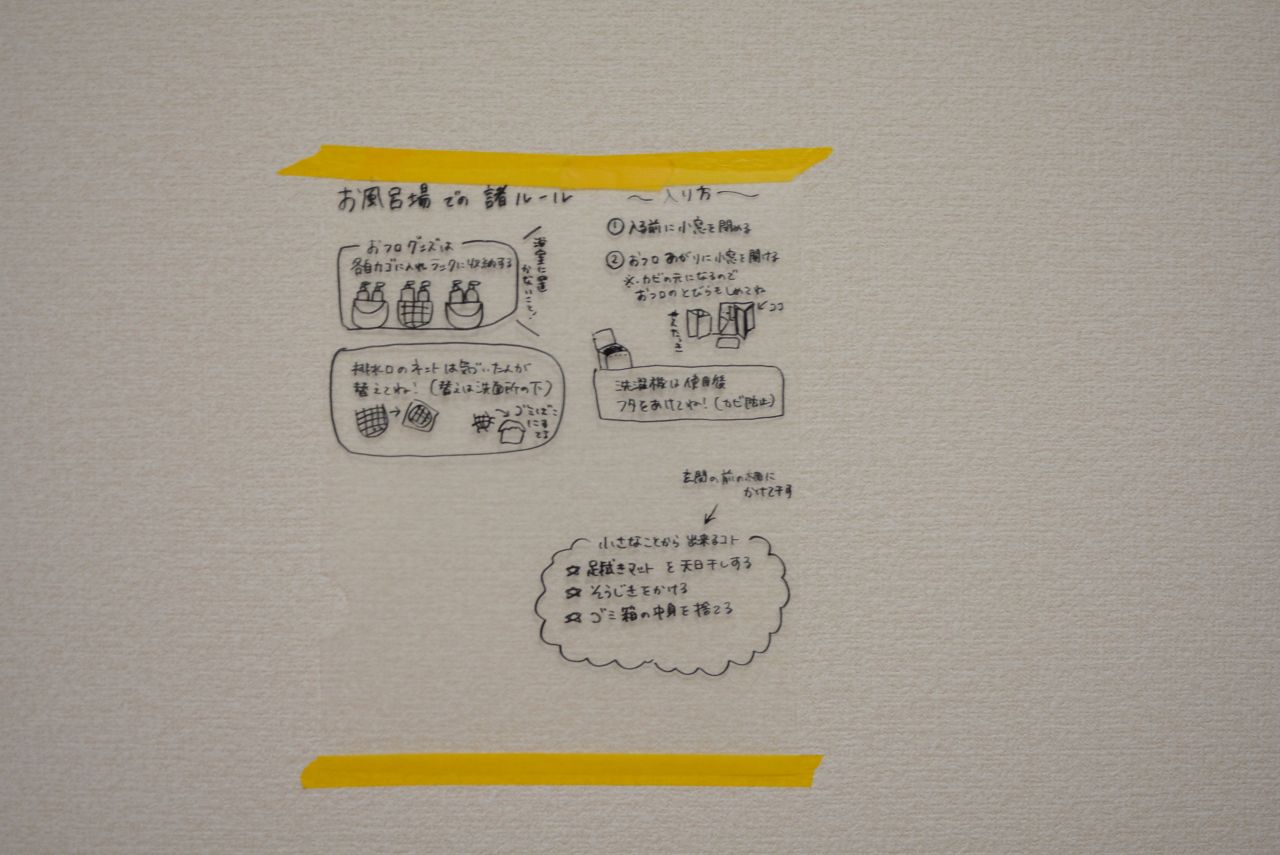 お風呂場での諸ルール
おフログッズは
各自カゴに入れラックに収納する
浴室に置
かないこと!
排水口のネットは気づいた人が
替えてね!(替えは洗面所の下)
ゴミばこ
にす
てる
〜入り方〜
① 入る前に小窓を閉める
② おフロあがりに小窓を開ける
※カビの元になるので
おフロのとびらもしめてね
ココ
洗濯機は使用後
フタをあけてね!(カビ防止)
玄関の前の柵に
かけて干す
小さなことから出来るコト
☆ 足拭きマットを天日干しする
☆ そうじきをかける
☆ ゴミ箱の中身を捨てる